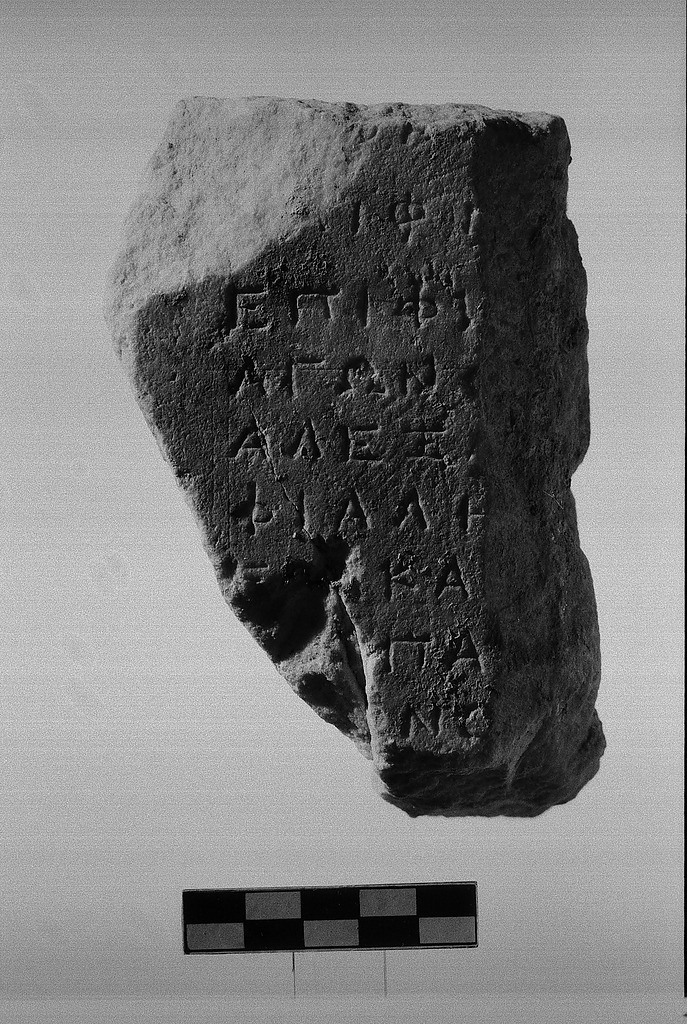 ΙΦΙ
ΕΠΙΦΙ
ΑΓΩΝ
ΑΛΕΞ
ΦΙΛΛΙ
ΚΑ
ΠΑ
ΝΟ